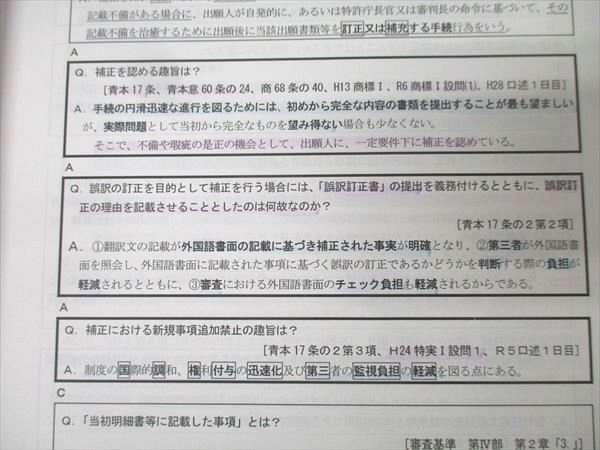 記載不備がある場合に、出願人が自発的に、あるいは特許庁長官又は審判長の命令に基づいて、その
記載不備を治癒するために出願後に当該出願書類等を訂正又は補充する手続行為をいう。
A
Q. 補正を認める趣旨は？
[青本 17 条、青本意 60 条の 24、商 68 条の 40、H13 商標Ⅰ、R6 商標Ⅰ設問(1)、H28 口述１日目]
A. 手続の円滑迅速な進行を図るためには、初めから完全な内容の書類を提出することが最も望ましい
が、実際問題として当初から完全なものを望み得ない場合も少なくない。
そこで、不備や瑕疵の是正の機会として、出願人に、一定要件下に補正を認めている。
A
Q. 誤訳の訂正を目的として補正を行う場合には、「誤訳訂正書」の提出を義務付けるとともに、誤訳訂
正の理由を記載させることとしたのは何故なのか？
[青本 17 の２第２項]
A. ①翻訳文の記載が外国語書面の記載に基づき補正された事実が明確となり、②第三者が外国語書
面を照会し、外国語書面に記載された事項に基づく誤訳の訂正であるかどうかを判断する際の負担が
軽減されるとともに、③審査における外国語書面のチェック負担も軽減されるからである。
A
Q. 補正における新規事項追加禁止の趣旨は？
[青本 17 条の２第３項、H24 特実Ⅰ設問１、Ｒ５口述１日目]
A. 制度の国際的調和、権利付与の迅速化及び第三者の監視負担の軽減を図る点にある。
C
Q. 「当初明細書等に記載した事項」とは？
[審査基準 第Ⅳ部 第２章「3.」]